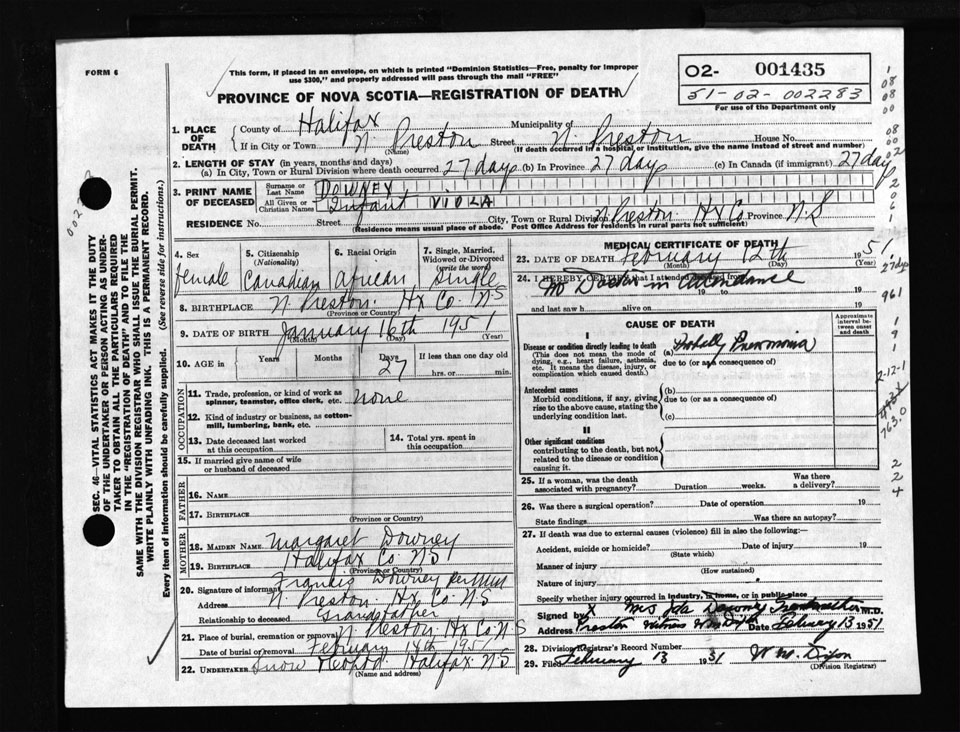 FORM 6
This form, if placed in an envelope, on which is printed "Dominion Statistics—Free, penalty for improper
use $300," and properly addressed will pass through the mail "FREE"
PROVINCE OF NOVA SCOTIA—REGISTRATION OF DEATH
02- 001435
51-02-002283
For use of the Department only
1. PLACE OF DEATH
County of Halifax Municipality of
If in City or Town N Preston Street N. Preston House No.
(Name) (If death occurred in a hospital or institution, give the name instead of street and number)
2. LENGTH OF STAY (in years, months and days)
(a) In City, Town or Rural Division where death occurred 27 days (b) In Province 27 days (c) In Canada (if immigrant) 27 days
3. PRINT NAME OF DECEASED
Surname or Last Name DOWNEY
All Given or Christian Names Infant VIOLA
RESIDENCE No. Street City, Town or Rural Division N Preston Hx Co Province N.S
(Residence means usual place of abode. Post Office Address for residents in rural parts not sufficient)
4. Sex female
5. Citizenship (Nationality) Canadian
6. Racial Origin African
7. Single, Married, Widowed or Divorced (write the word) Single
8. BIRTHPLACE N Preston. Hx Co. NS
(Province or Country)
9. DATE OF BIRTH January 16th 1951
(Month) (Day) (Year)
10. AGE in Years Months Days 27 If less than one day old hrs. or min.
OCCUPATION
11. Trade, profession, or kind of work as spinner, teamster, office clerk, etc. None
12. Kind of industry or business, as cotton-mill, lumbering, bank, etc.
13. Date deceased last worked at this occupation
14. Total yrs. spent in this occupation
15. If married give name of wife or husband of deceased
FATHER
16. NAME
17. BIRTHPLACE
(Province or Country)
MOTHER
18. MAIDEN NAME Margaret Downey
19. BIRTHPLACE Halifax Co NS
(Province or Country)
20. Signature of informant Francis Downey Per
Address N Preston. Hx Co. NS
Relationship to deceased Grandfather
21. Place of burial, cremation or removal N Preston Hx Co. N-S
Date of burial or removal February 14th 1951
22. UNDERTAKER Snow Halifax NS
(Name and address)
MEDICAL CERTIFICATE OF DEATH
23. DATE OF DEATH February 12th 1951
(Month) (Day) (Year)
24. I HEREBY CERTIFY that I attended deceased from
No Doctor in attendance
19 to 19
and last saw h alive on 19
CAUSE OF DEATH
Approximate interval between onset and death
I
Disease or condition directly leading to death
(This does not mean the mode of dying, e.g., heart failure, asthenia, etc. It means the disease, injury, or complication which caused death.)
(a) Probally Pneumonia
due to (or as a consequence of)
Antecedent causes
Morbid conditions, if any, giving rise to the above cause, stating the underlying condition last.
(b)
due to (or as a consequence of)
(c)
II
Other significant conditions
contributing to the death, but not related to the disease or condition causing it.
25. If a woman, was the death associated with pregnancy? Duration weeks. Was there a delivery?
26. Was there a surgical operation? Date of operation 19
State findings Was there an autopsy?
27. If death was due to external causes (violence) fill in also the following:
Accident, suicide or homicide? Date of injury 19
(State which)
Manner of injury
(How sustained)
Nature of injury
Specify whether injury occurred in industry, in home, or in public place
Signed by X Mrs Ida Downey Grandmother M.D.
Address Preston Witness Date Febuary 13 1951
28. Division Registrar's Record Number
29. Filed February 13 1951 W. M. Dixon
(Division Registrar)
SEC. 46—VITAL STATISTICS ACT MAKES IT THE DUTY
OF THE UNDERTAKER OR PERSON ACTING AS UNDER-
TAKER TO OBTAIN ALL THE PARTICULARS REQUIRED
IN THE "REGISTRATION OF DEATH" AND TO FILE THE
SAME WITH THE DIVISION REGISTRAR WHO SHALL ISSUE THE BURIAL PERMIT.
WRITE PLAINLY WITH UNFADING INK. THIS IS A PERMANENT RECORD.
Every item of information should be carefully supplied. (See reverse side for instructions.)
1
08
08
00
08
00
02
2
0
6
1
1
27 days
961
1
9
1
1
2-12-1
763.0
2
2
4